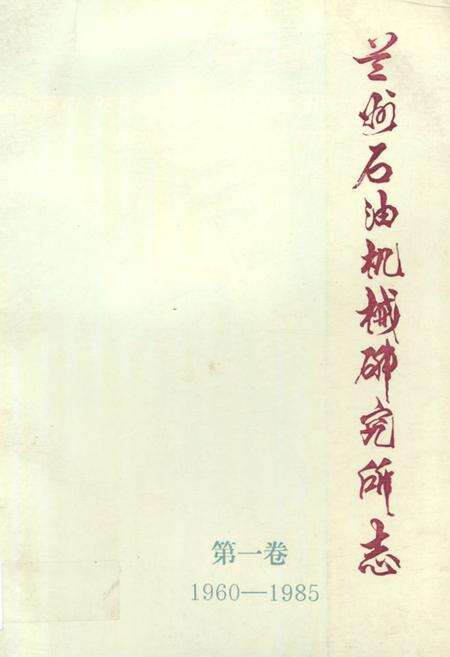 兰州石油机械研究所志
第一卷
1960—1985